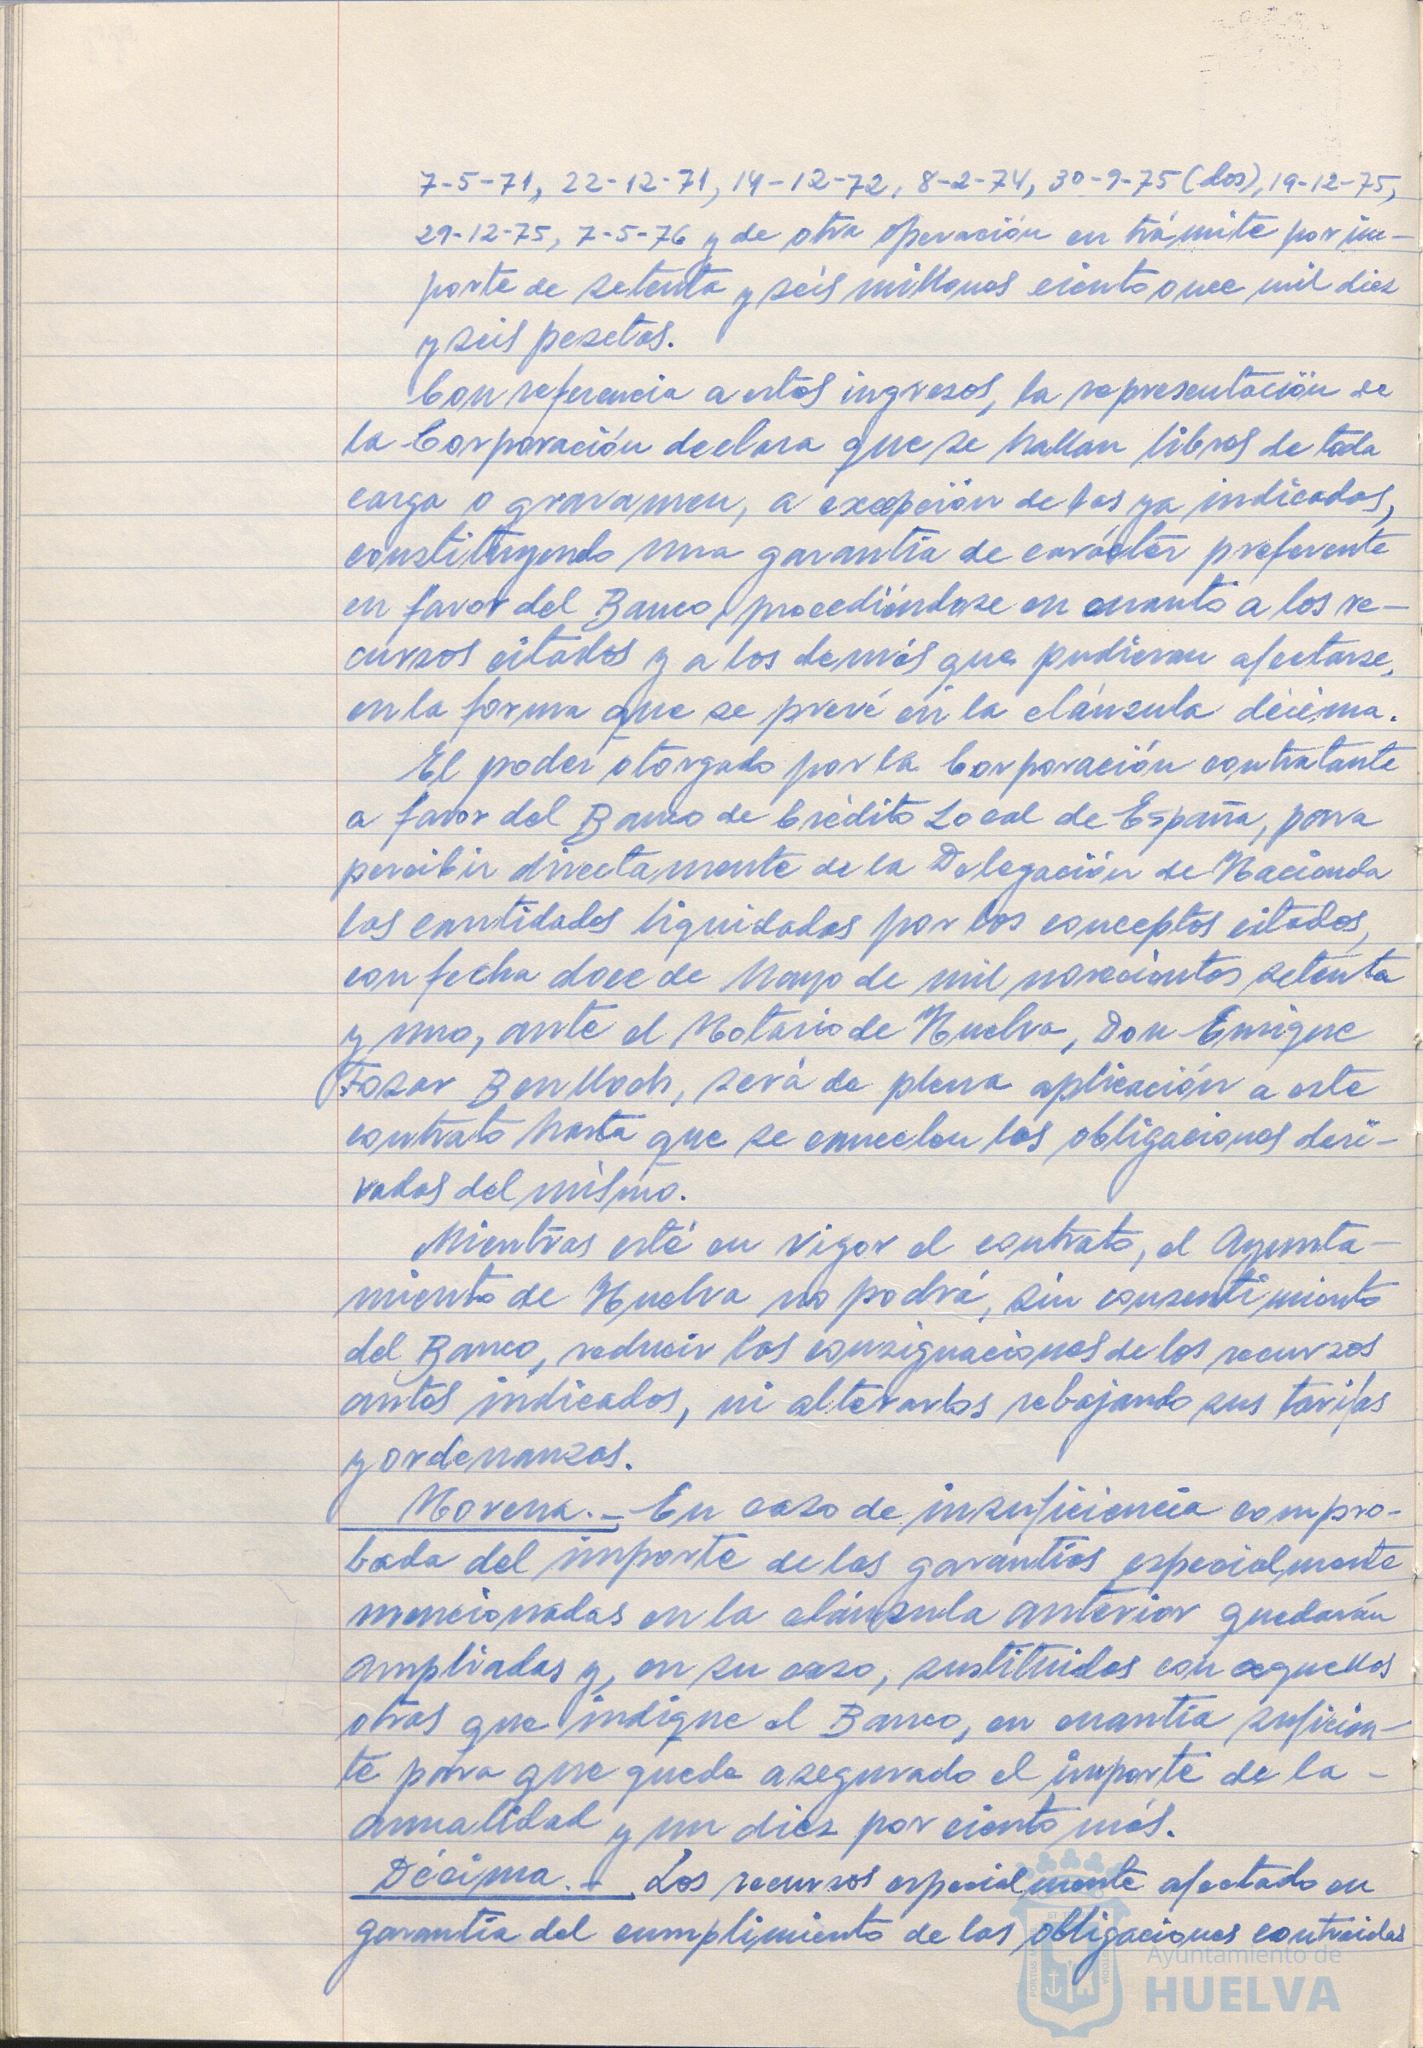 7-5-71, 22-12-71, 14-12-72, 8-2-74, 30-9-75 (dos), 19-12-75,
29-12-75, 7-5-76 y de otra operación en trámite por im-
porte de setenta y seis millones ciento once mil diez
y seis pesetas.
Con referencia a estos ingresos, la representación de
la Corporación declara que se hallan libres de toda
carga o gravamen, a excepción de las ya indicadas,
constituyendo una garantía de carácter preferente
en favor del Banco, procediéndose en cuanto a los re-
cursos citados y a los demás que pudieran afectarse,
en la forma que se prevé en la cláusula décima.
El poder otorgado por la Corporación contratante
a favor del Banco de Crédito Local de España, para
percibir directamente de la Delegación de Hacienda
las cantidades liquidadas por los conceptos citados,
con fecha doce de Mayo de mil novecientos setenta
y uno, ante el Notario de Huelva, Don Enrique
Benlloch, será de plena aplicación a este
contrato hasta que se cancelen las obligaciones deri-
vadas del mismo.
Mientras esté en vigor el contrato, el Ayunta-
miento de Huelva no podrá, sin consentimiento
del Banco, reducir las consignaciones de los recursos
antes indicados, ni alterarlos rebajando sus tarifas
y ordenanzas.
Novena.- En caso de insuficiencia compro-
bada del importe de las garantías especialmente
mencionadas en la cláusula anterior quedarán
ampliadas y, en su caso, sustituidas con aquellas
otras que indique el Banco, en cuantía suficien-
te para que quede asegurado el importe de la -
anualidad y un diez por ciento más.
Décima.- Los recursos especialmente afectado en
garantía del cumplimiento de las obligaciones contraidas
Ayuntamiento de
HUELVA